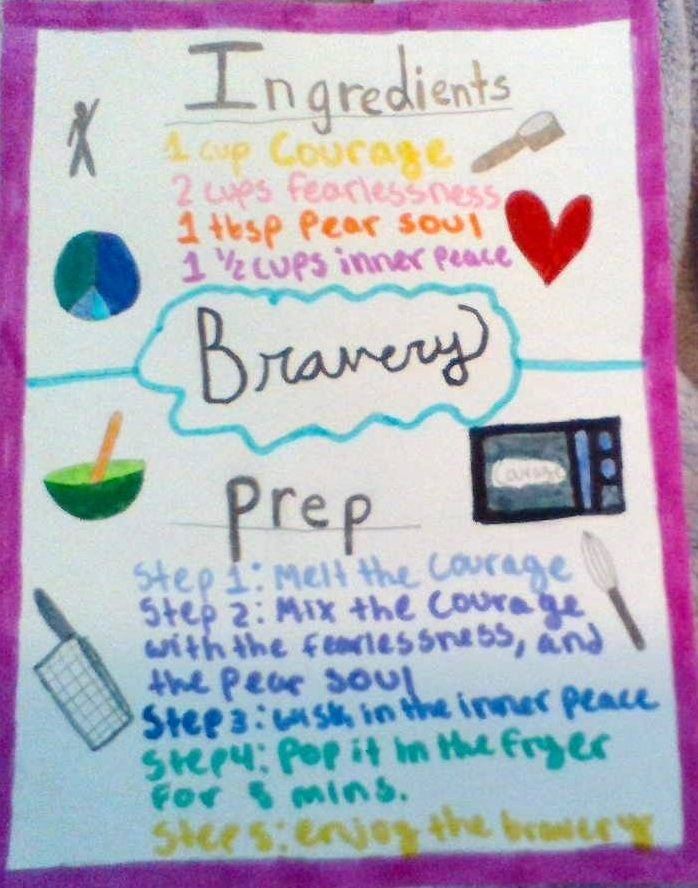 Ingredients
1 cup Courage
2 cups fearlessness
1 tbsp Pear soul
1 ½ cups inner Peace
Bravery
Courage
Prep
Step 1: Melt the Courage
Step 2: Mix the Courage
with the fearlessness, and
the Pear soul
Step 3: wisk in the inner peace
Step 4: Pop it In the fryer
For 5 mins.
Step 5: enjoy the bravery